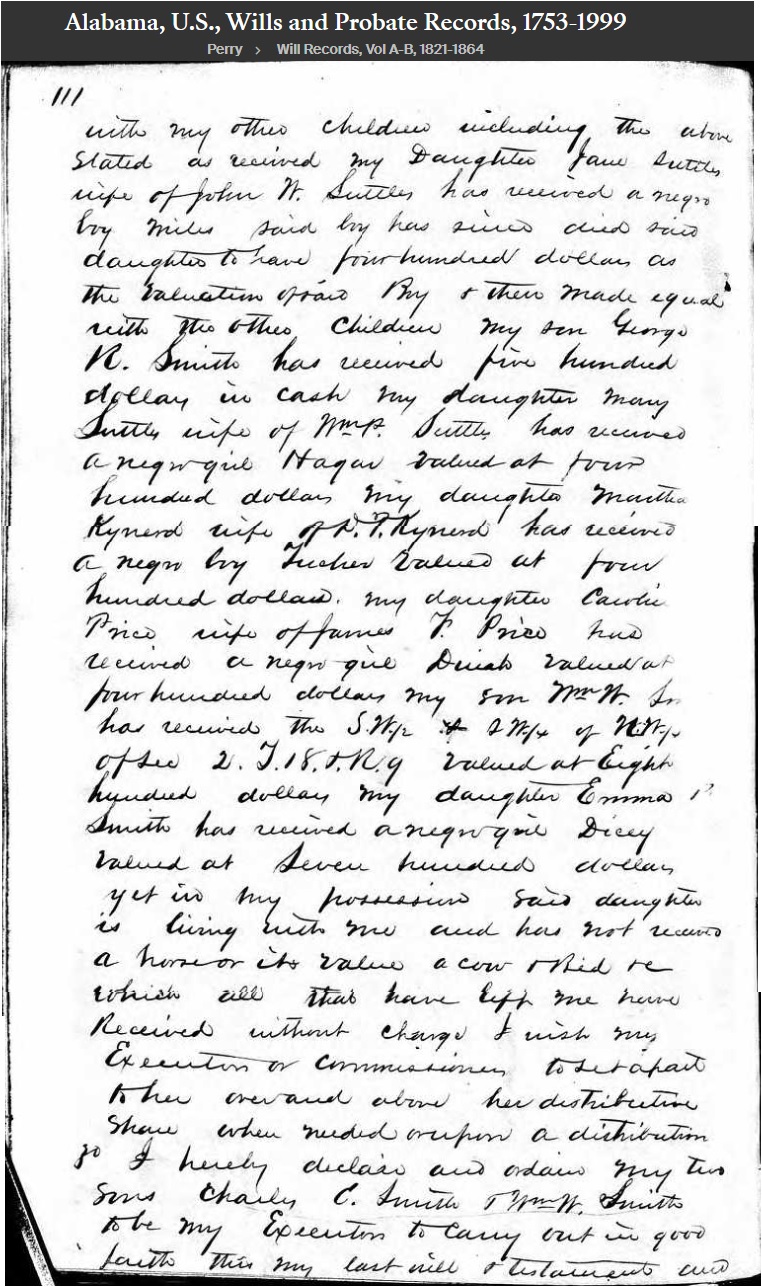 Alabama, U.S., Wills and Probate Records, 1753-1999
Perry > Will Records, Vol A-B, 1821-1864
111
with my other children including the above
Stated as received my Daughter Jane Suttles
wife of John W. Suttles has received a negro
boy Miles said boy has since died said
daughter to have four hundred dollars as
the valuation of said Boy & then made equal
with the other Children my son George
R. Smith has received five hundred
dollars in cash my daughter Mary
Suttles wife of Wm P. Suttles has received
a negro girl Hagar valued at four
hundred dollars my daughter Martha
Kynerd wife of F. Kynerd has received
a negro boy Tucker valued at four
hundred dollars. my daughter Carolin
Price wife of James F. Price has
received a negro girl Dinah valued at
four hundred dollars my son Wm W. Sm
has received the S.W/2 & S W/4 of N.W/4
of Sec 2. T.18.& R.9 valued at Eight
hundred dollars my daughter Emma P
Smith has received a negro girl Dicey
valued at Seven hundred dollars
yet in my possession said daughter
is living with me and has not received
a horse or its value a cow & Bed &c
which all that have left me have
Received without charge I wish my
Executors or commissioners to set apart
to her over and above her distributive
Share when needed or upon a distribution
I hereby declare and ordain my two
sons Charles C. Smith & Wm W. Smith
to be my Executors to carry out in good
faith this my last will & testament and